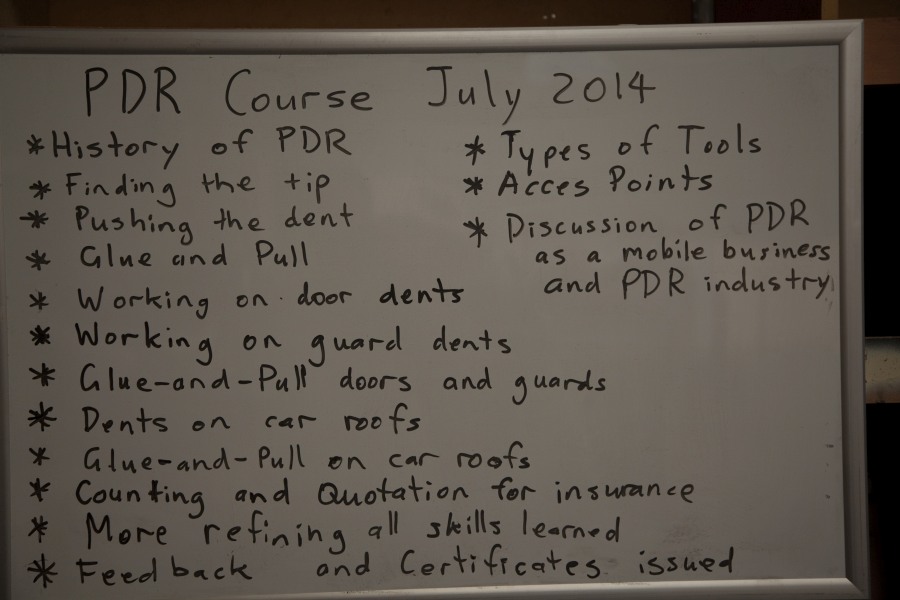 PDR Course July 2014
* History of PDR
* Finding the tip
* Pushing the dent
* Glue and Pull
* Working on door dents
* Working on guard dents
* Glue-and-Pull doors and guards
* Dents on car roofs
* Glue-and-Pull on car roofs
* Counting and Quotation for insurance
* More refining all skills learned
* Feedback and Certificates issued
* Types of Tools
* Acces Points
* Discussion of PDR
as a mobile business
and PDR industry